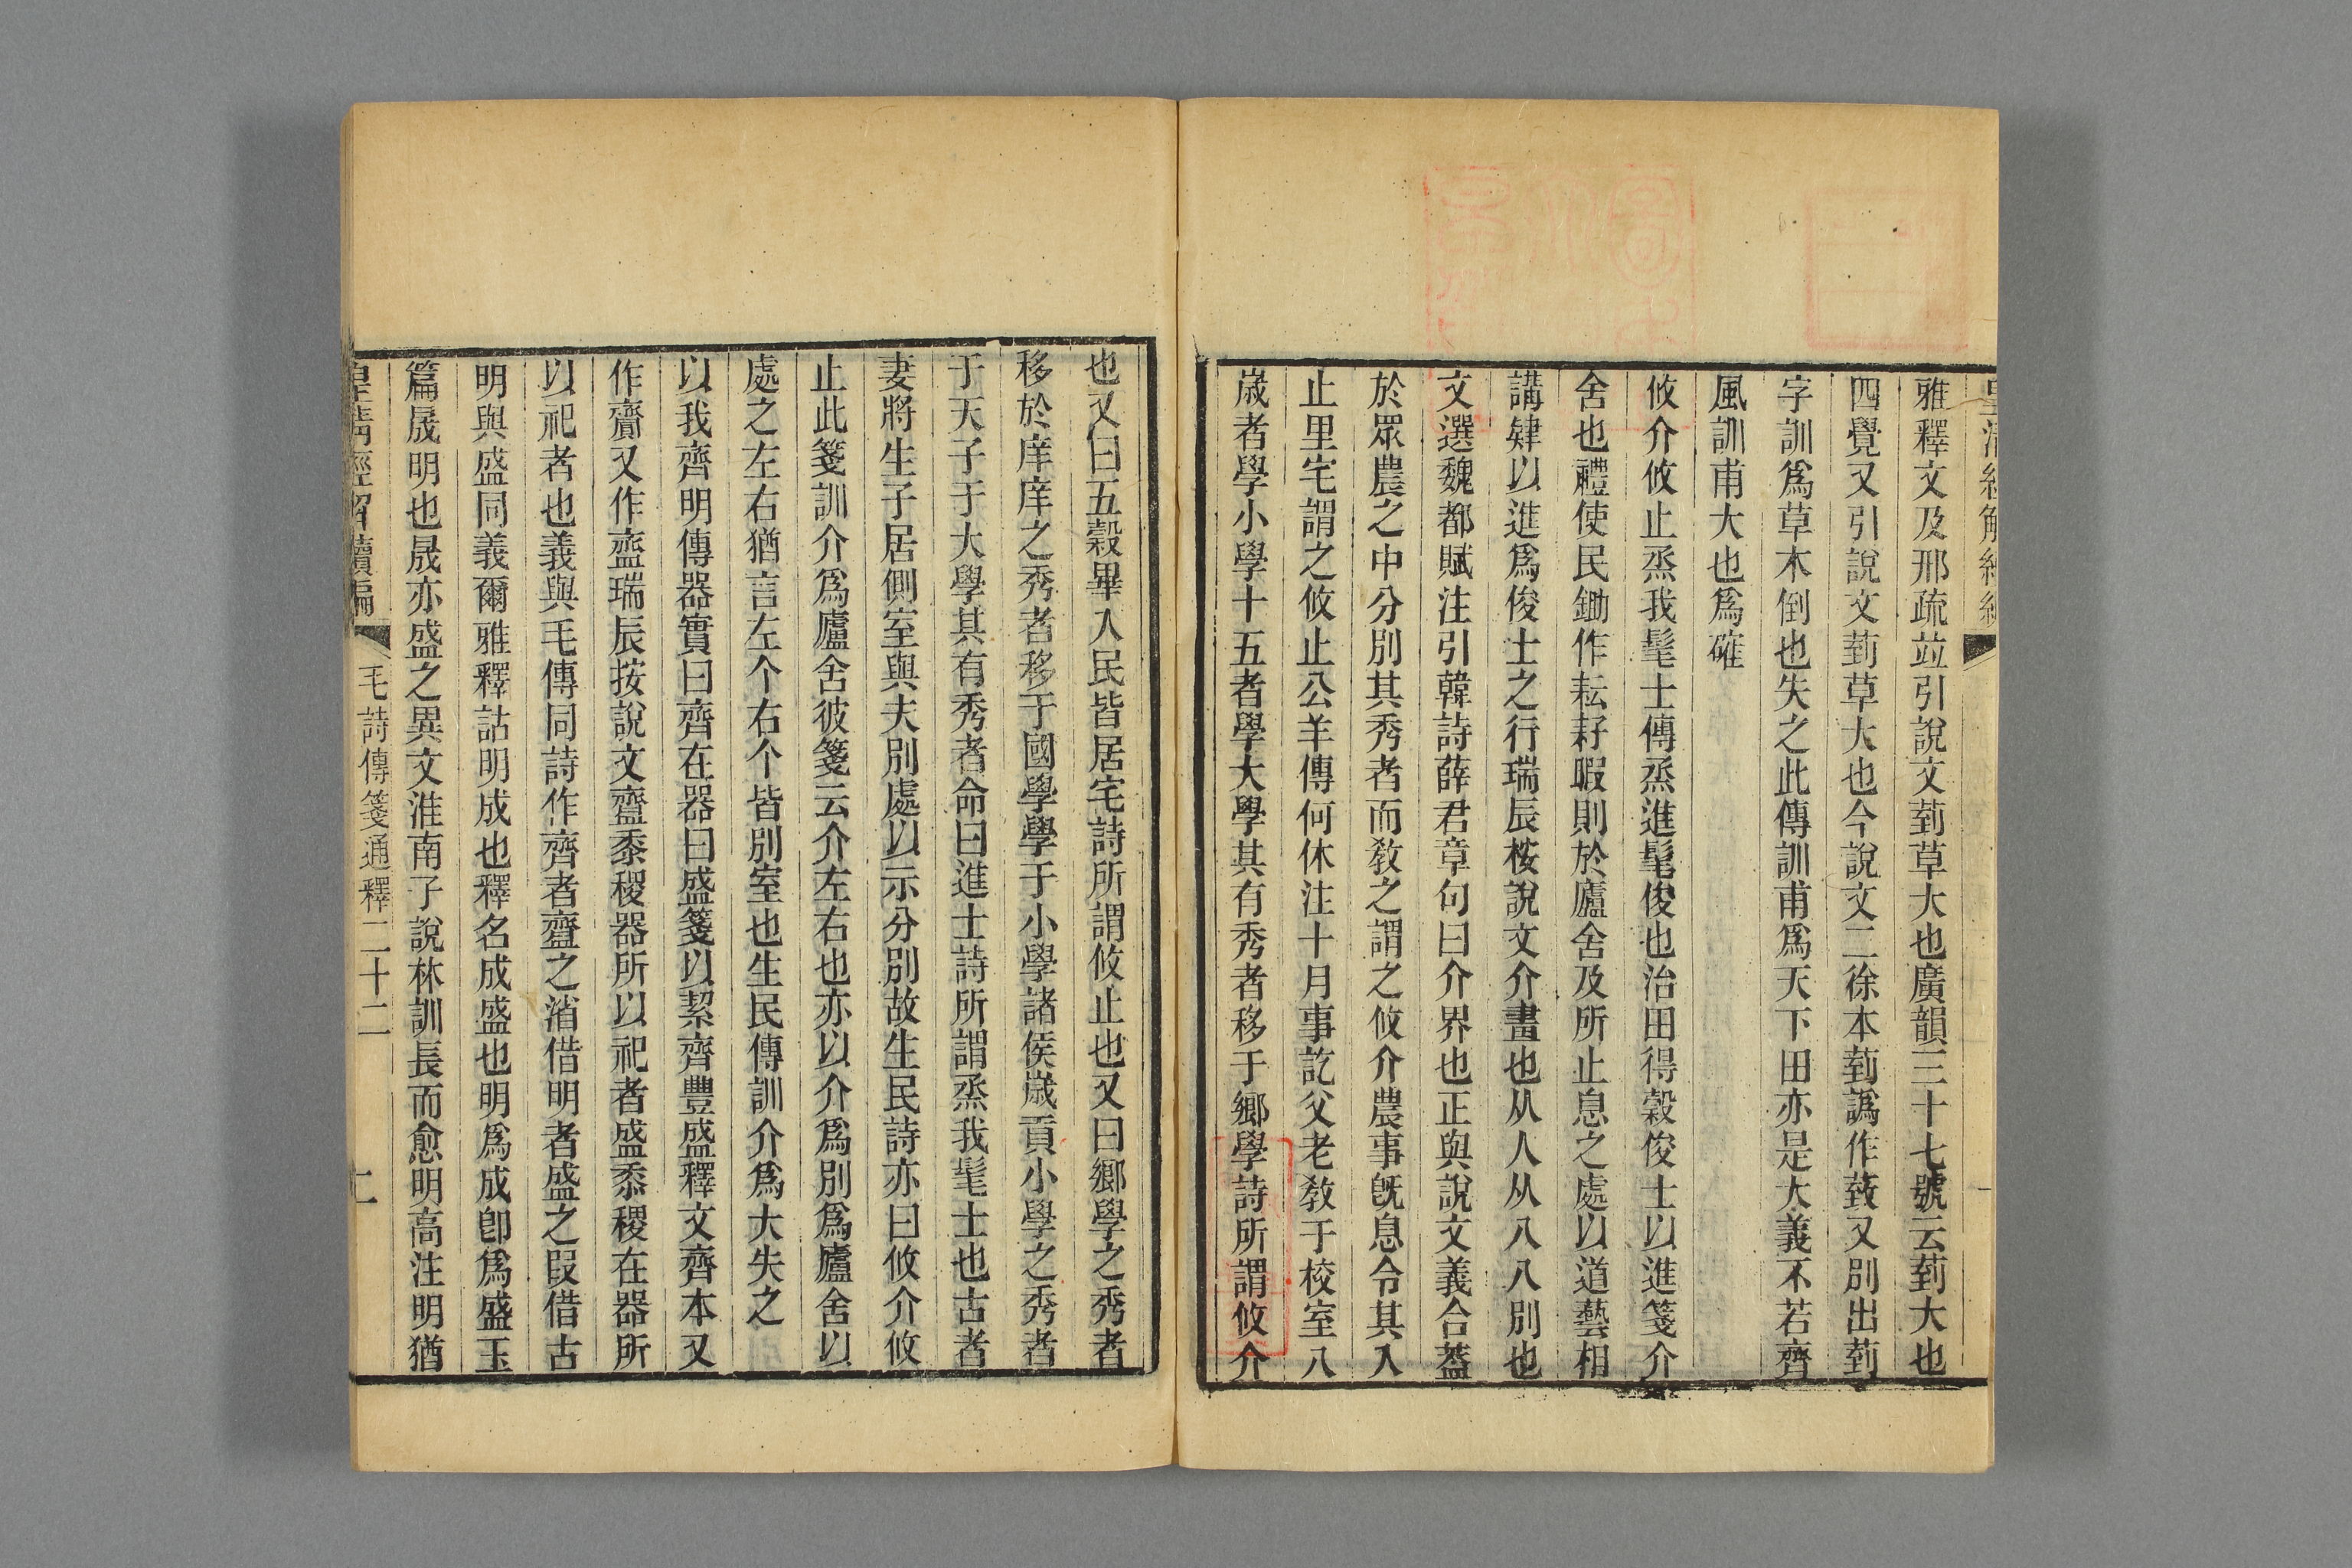 皇清經解續編
雅釋文及邢疏竝引說文菿草大也廣韻三十七號云菿大也
四覺又引說文菿草大也今說文二徐本菿譌作䓯又別出菿
字訓爲草木倒也失之此傳訓甫爲天下田亦是大義不若齊
風訓甫大也爲確
攸介攸止烝我髦士傳烝進髦俊也治田得穀俊士以進箋介
舍也禮使民鋤作耘耔暇則於廬舍及所止息之處以道藝相
講肄以進爲俊士之行瑞辰桉說文介畫也从人从八八別也
文選魏都賦注引韓詩薛君章句曰介界也正與說文義合葢
於眾農之中分別其秀者而敎之謂之攸介農事旣息令其入
止里宅謂之攸止公羊傳何休注十月事訖父老敎于校室八
歲者學小學十五者學大學其有秀者移于鄉學詩所謂攸介
也又曰五穀畢入民皆居宅詩所謂攸止也又曰鄉學之秀者
移於庠庠之秀者移于國學學于小學諸侯歲貢小學之秀者
于天子于大學其有秀者命曰進士詩所謂烝我髦士也古者
妻將生子居側室與夫別處以示分別故生民詩亦曰攸介攸
止此箋訓介爲廬舍彼箋云介左右也亦以介爲別爲廬舍以
處之左右猶言左个右个皆別室也生民傳訓介爲大失之
以我齊明傳器實曰齊在器曰盛箋以絜齊豐盛釋文齊本又
作齎又作齍瑞辰按說文齍黍稷器所以祀者盛黍稷在器所
以祀者也義與毛傳同詩作齊者齍之渻借明者盛之叚借古
明與盛同義爾雅釋詁明成也釋名成盛也明爲成卽爲盛玉
篇晟明也晟亦盛之異文淮南子說林訓長而愈明高注明猶
皇清經解續編 毛詩傳箋通釋二十二 二